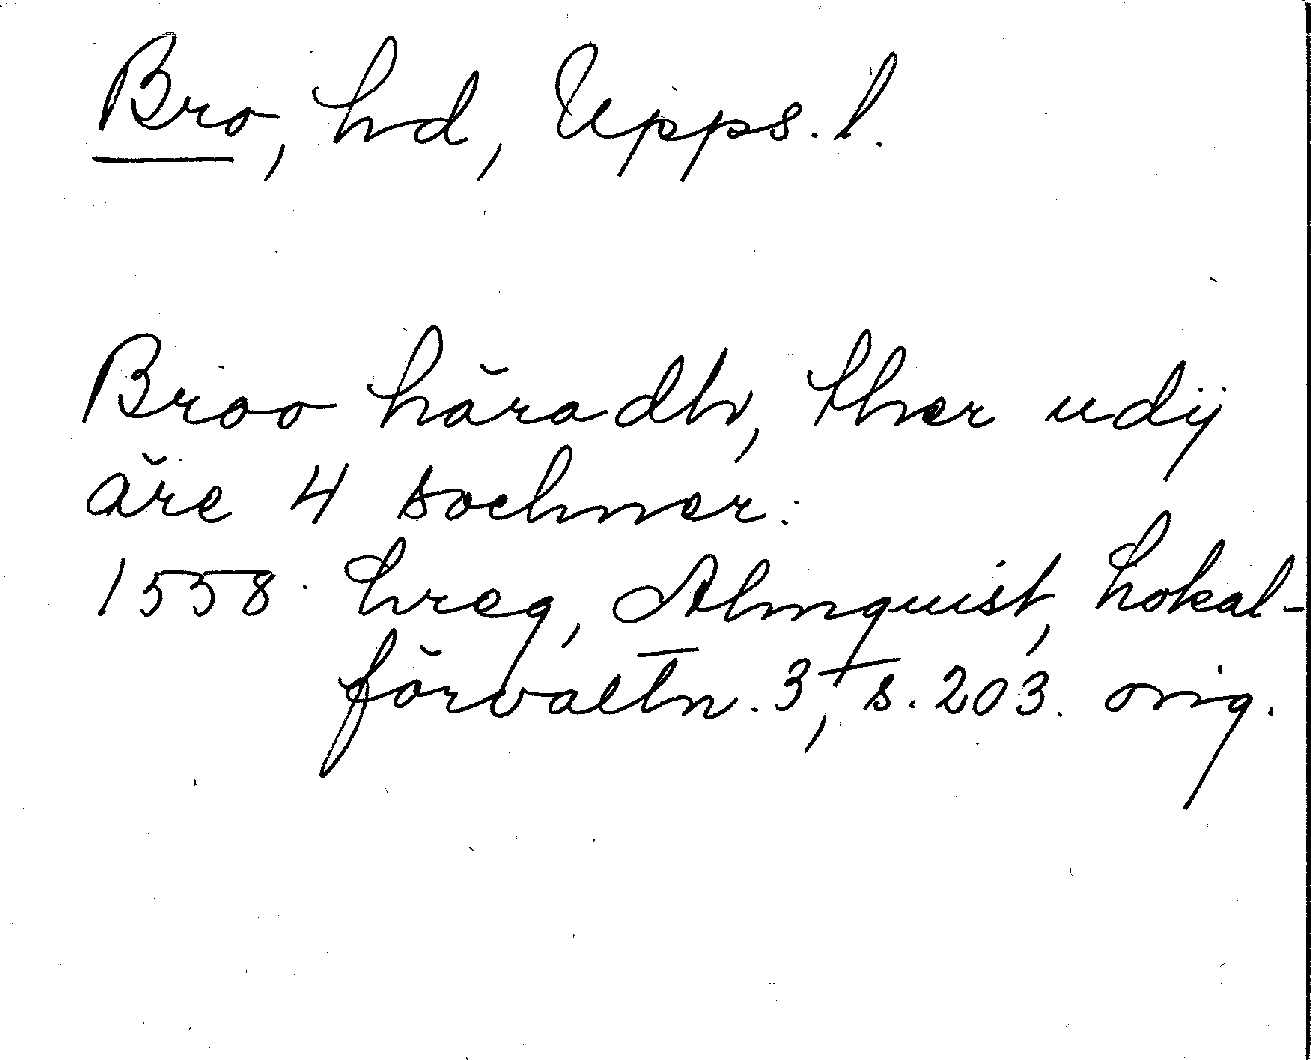 Bro, hd, Upps. l.
Broo häradh, ther udij
äre 4 sochner.
1558. hreg, Almquist, Lokal-
förvaltn. 3, s. 203. orig.